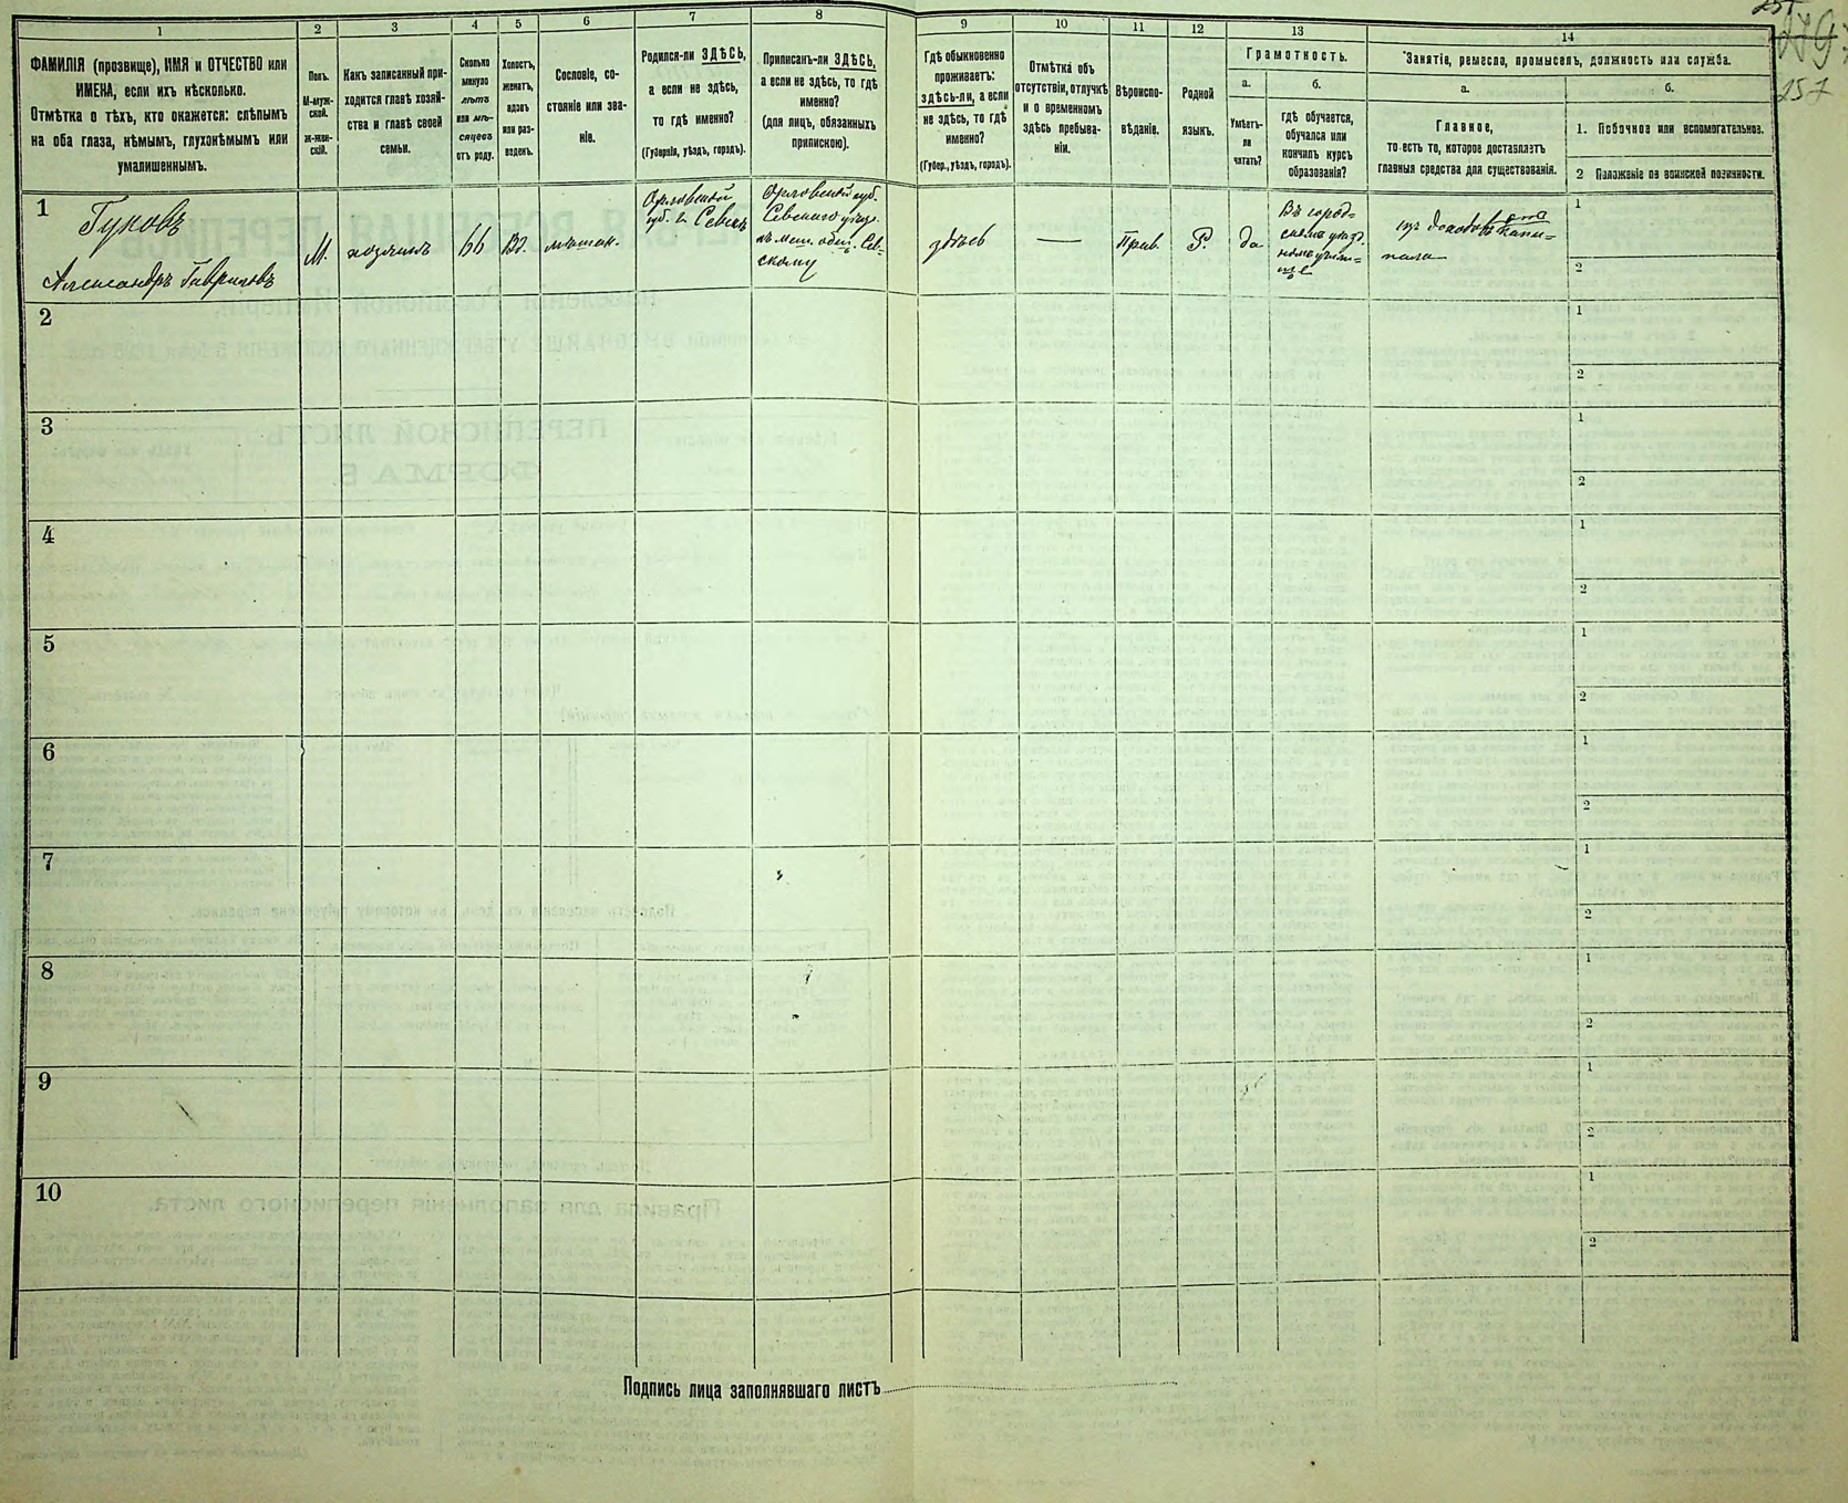 257
1
2
3
4
5
6
7
8
9
10
11
12
13
14
ФАМИЛІЯ (прозвище), ИМЯ и ОТЧЕСТВО или
ИМЕНА, если ихъ нѣсколько.
Отмѣтка о тѣхъ, кто окажется: слѣпымъ
на оба глаза, нѣмымъ, глухонѣмымъ или
умалишеннымъ.
Полъ.
М-муж-
ской.
Ж-жен-
скій.
Какъ записанный при-
ходится главѣ хозяй-
ства и главѣ своей
семьи.
Сколько
минуло
лѣтъ
или мѣ-
сяцевъ
отъ роду.
Холостъ,
женатъ,
вдовъ
или раз-
веденъ.
Сословіе, со-
стояніе или зва-
ніе.
Родился-ли ЗДѢСЬ,
а если не здѣсь,
то гдѣ именно?
(Губернія, уѣздъ, городъ).
Приписанъ-ли ЗДѢСЬ,
а если не здѣсь, то гдѣ
именно?
(для лицъ, обязанныхъ
припискою).
Гдѣ обыкновенно
проживаетъ:
здѣсь-ли, а если
не здѣсь, то гдѣ
именно?
(Губер., уѣздъ, городъ).
Отмѣтка объ
отсутствіи, отлучкѣ
и о временномъ
здѣсь пребыва-
ніи.
Вѣроиспо-
вѣданіе.
Родной
языкъ.
Грамотность.
а.
Умѣетъ-
ли
читать?
б.
гдѣ обучается,
обучался или
кончилъ курсъ
образованія?
Занятіе, ремесло, промыселъ, должность или служба.
а.
Главное,
то-есть то, которое доставляетъ
главныя средства для существованія.
б.
1. Побочное или вспомогательное.
2 Положеніе по воинской повинности.
1
Гуковъ
Александръ Гавриловъ
М.
хозяинъ
66
Вд.
мѣщан.
Орловской
губ. г. Севскъ
Орловской губ.
Севскаго уѣзд.
къ мѣщ. общ. Сев-
скому
здѣсь
—
Прав.
Р.
да
Въ город-
скомъ уѣзд.
номъ учили-
щѣ
изъ доходовъ отъ капи-
тала
1
2
2
1
2
3
1
2
4
1
2
5
1
2
6
1
2
7
1
2
8
1
2
9
1
2
10
1
2
Подпись лица заполнявшаго листъ